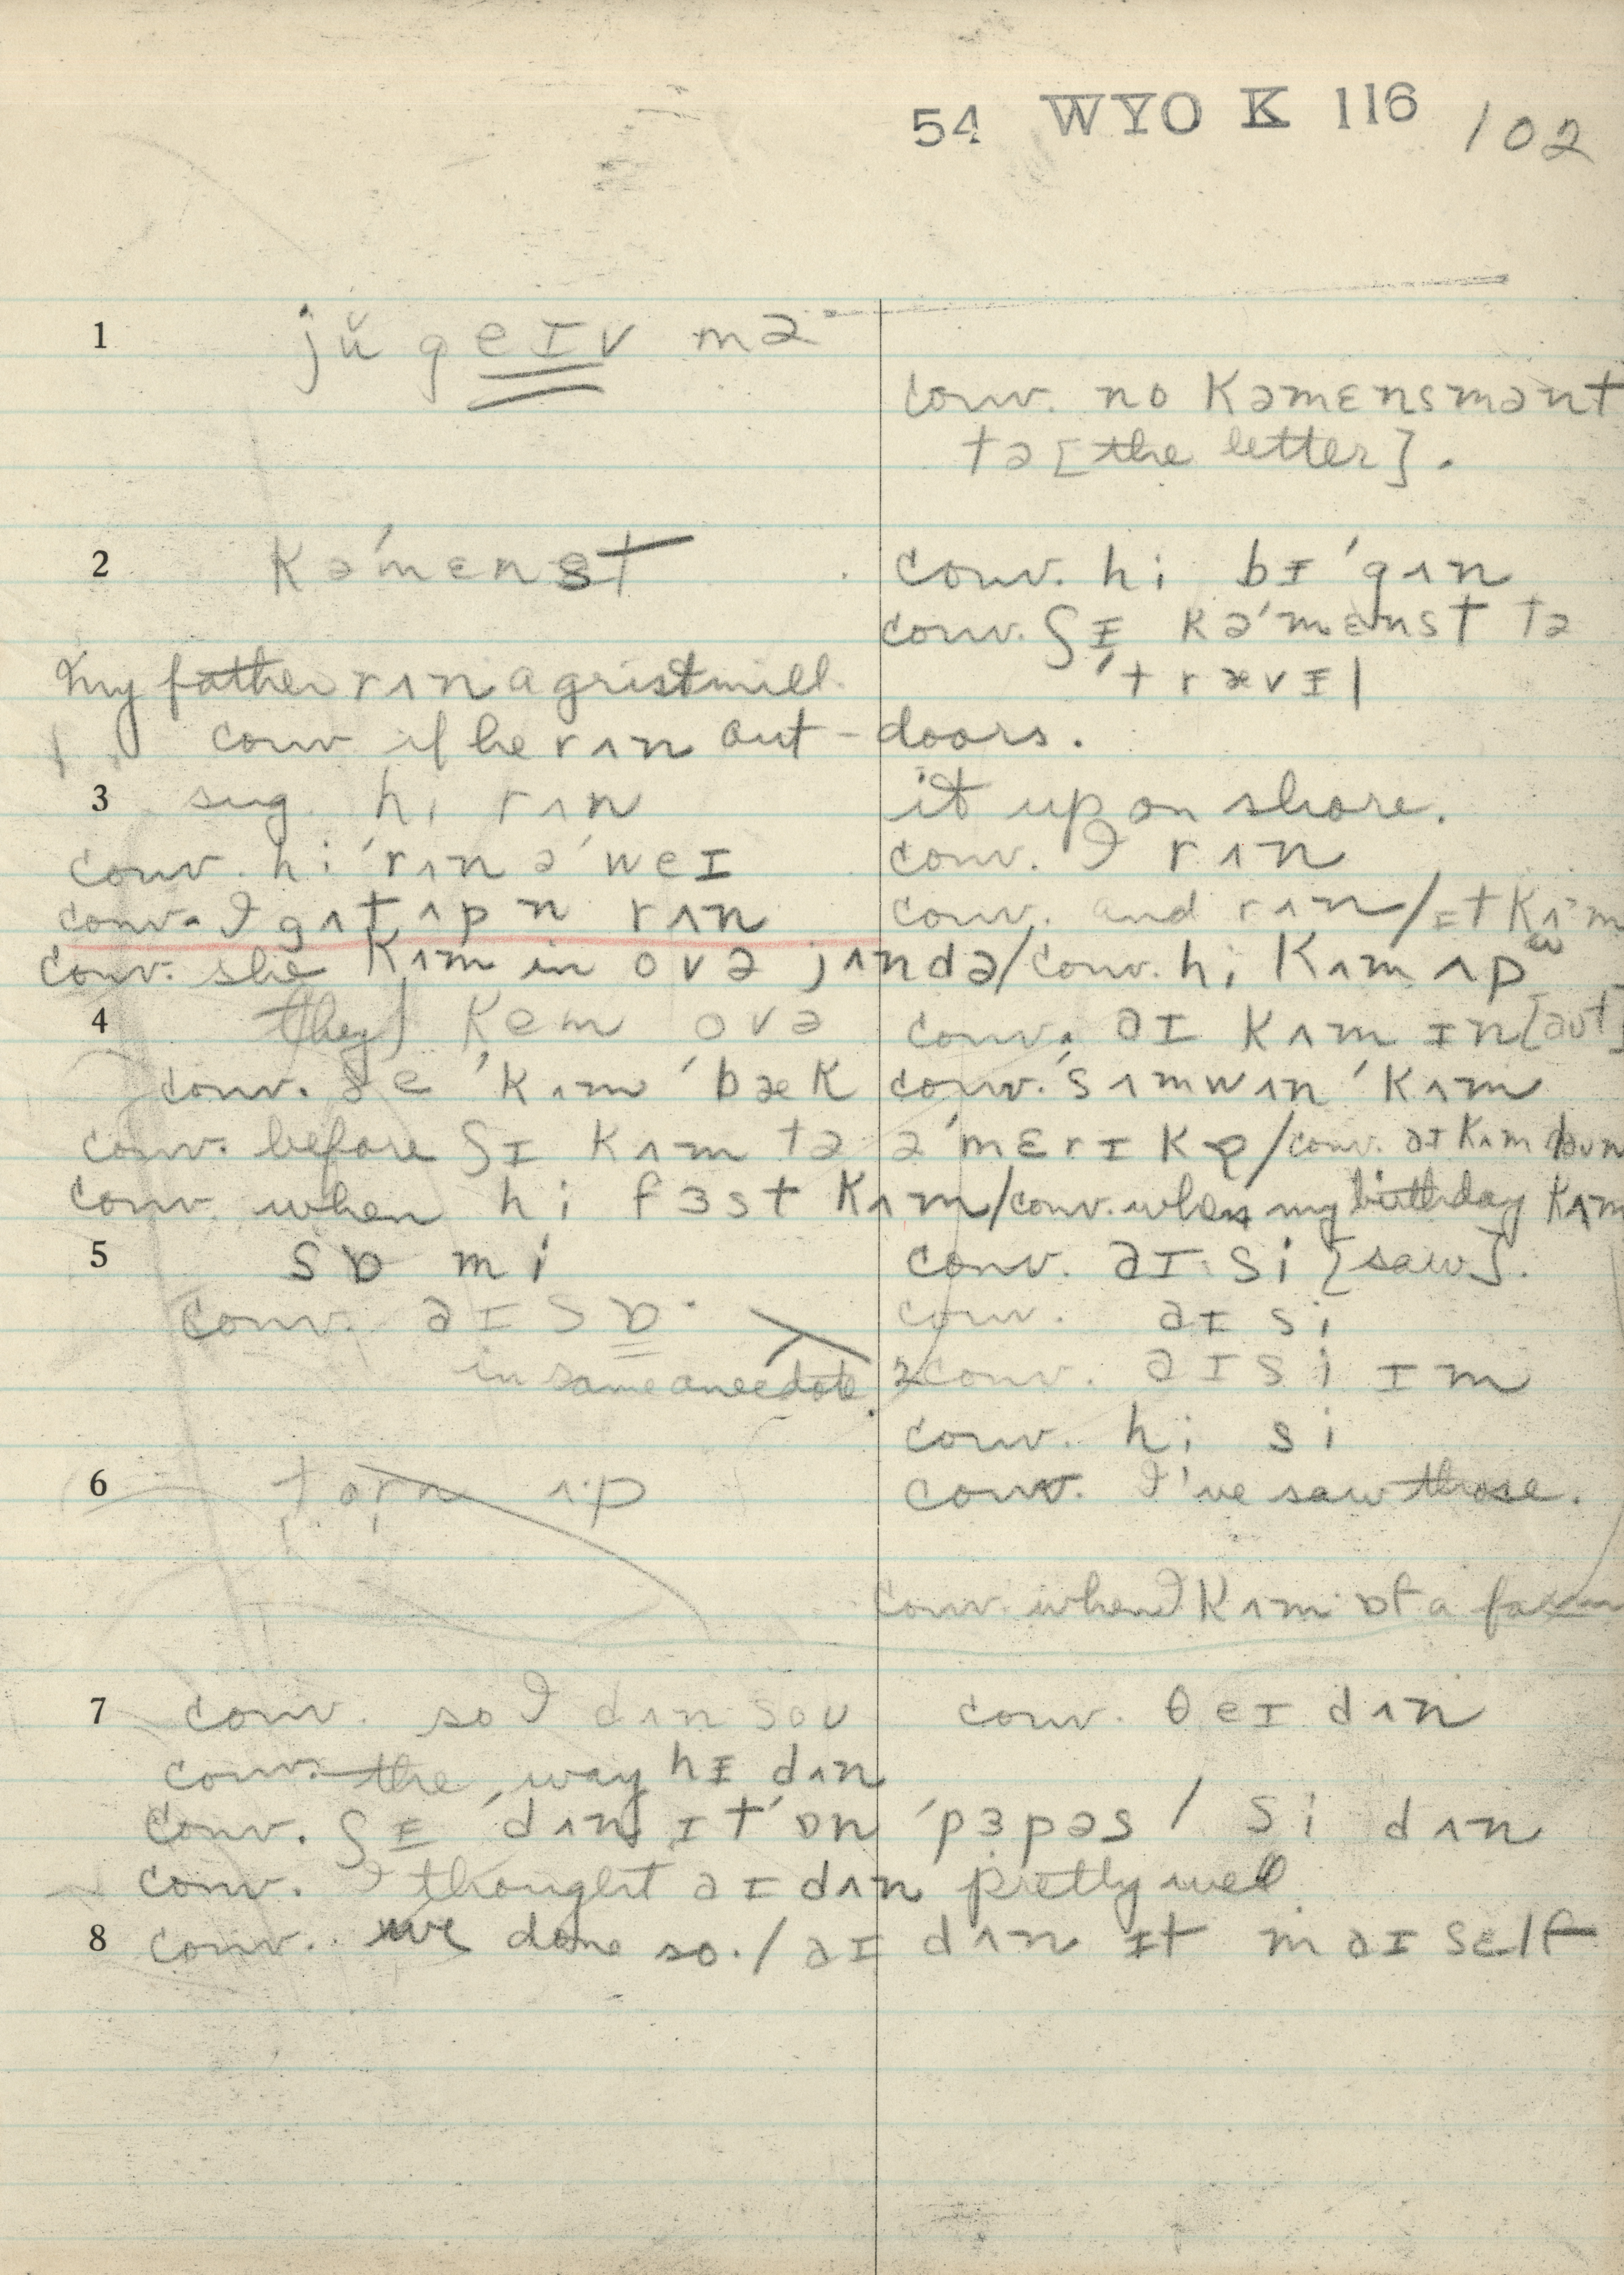 54 WYO K 116 102
1 jŭ geɪv mə
conv. no kəmɛnsmənt
tə [the letter].
2 kə'mɛnst conv. hi bɪ'gʌn
conv. ʃɪ kə'mɛnst tə
'trævɪl
my father rʌn a gristmill.
conv if he rʌn out-doors.
3 sug. hi rʌn it up on shore.
conv. hi 'rʌn ə'weɪ conv. I rʌn
conv. I gɪt ʌp n rʌn conv. and rʌn/ɪt kʌm
conv. she kʌm in ovə jʌndə/conv. hi kʌm ʌp
4 they] kem ovə conv. aɪ kʌm ɪn [aʊt]
conv. ðe 'kʌm 'bæk conv. 'sʌmwʌn 'kʌm
conv. before ʃɪ kʌm tə ə'mɛrɪkə/conv. aɪ kʌm daʊn
conv. when hi fɜst kʌm/conv. when my birthday kʌm
5 sɒ mi conv. aɪ si [saw].
conv. aɪ sɒ conv. aɪ si
in same anecdote. 2 conv. aɪ si ɪm
conv. hi si
6 torn ʌp conv. I've saw those.
conv. when I kʌm ɒf a farm
7 conv. so I dʌn soʊ conv. θeɪ dʌn
conv. the way hɪ dʌn
conv. ʃɪ 'dʌn ɪt 'ɒn 'pɜpəs / ʃi dʌn
conv. I thought aɪ dʌn pretty well
8 conv. we done so. / aɪ dʌn ɪt maɪself